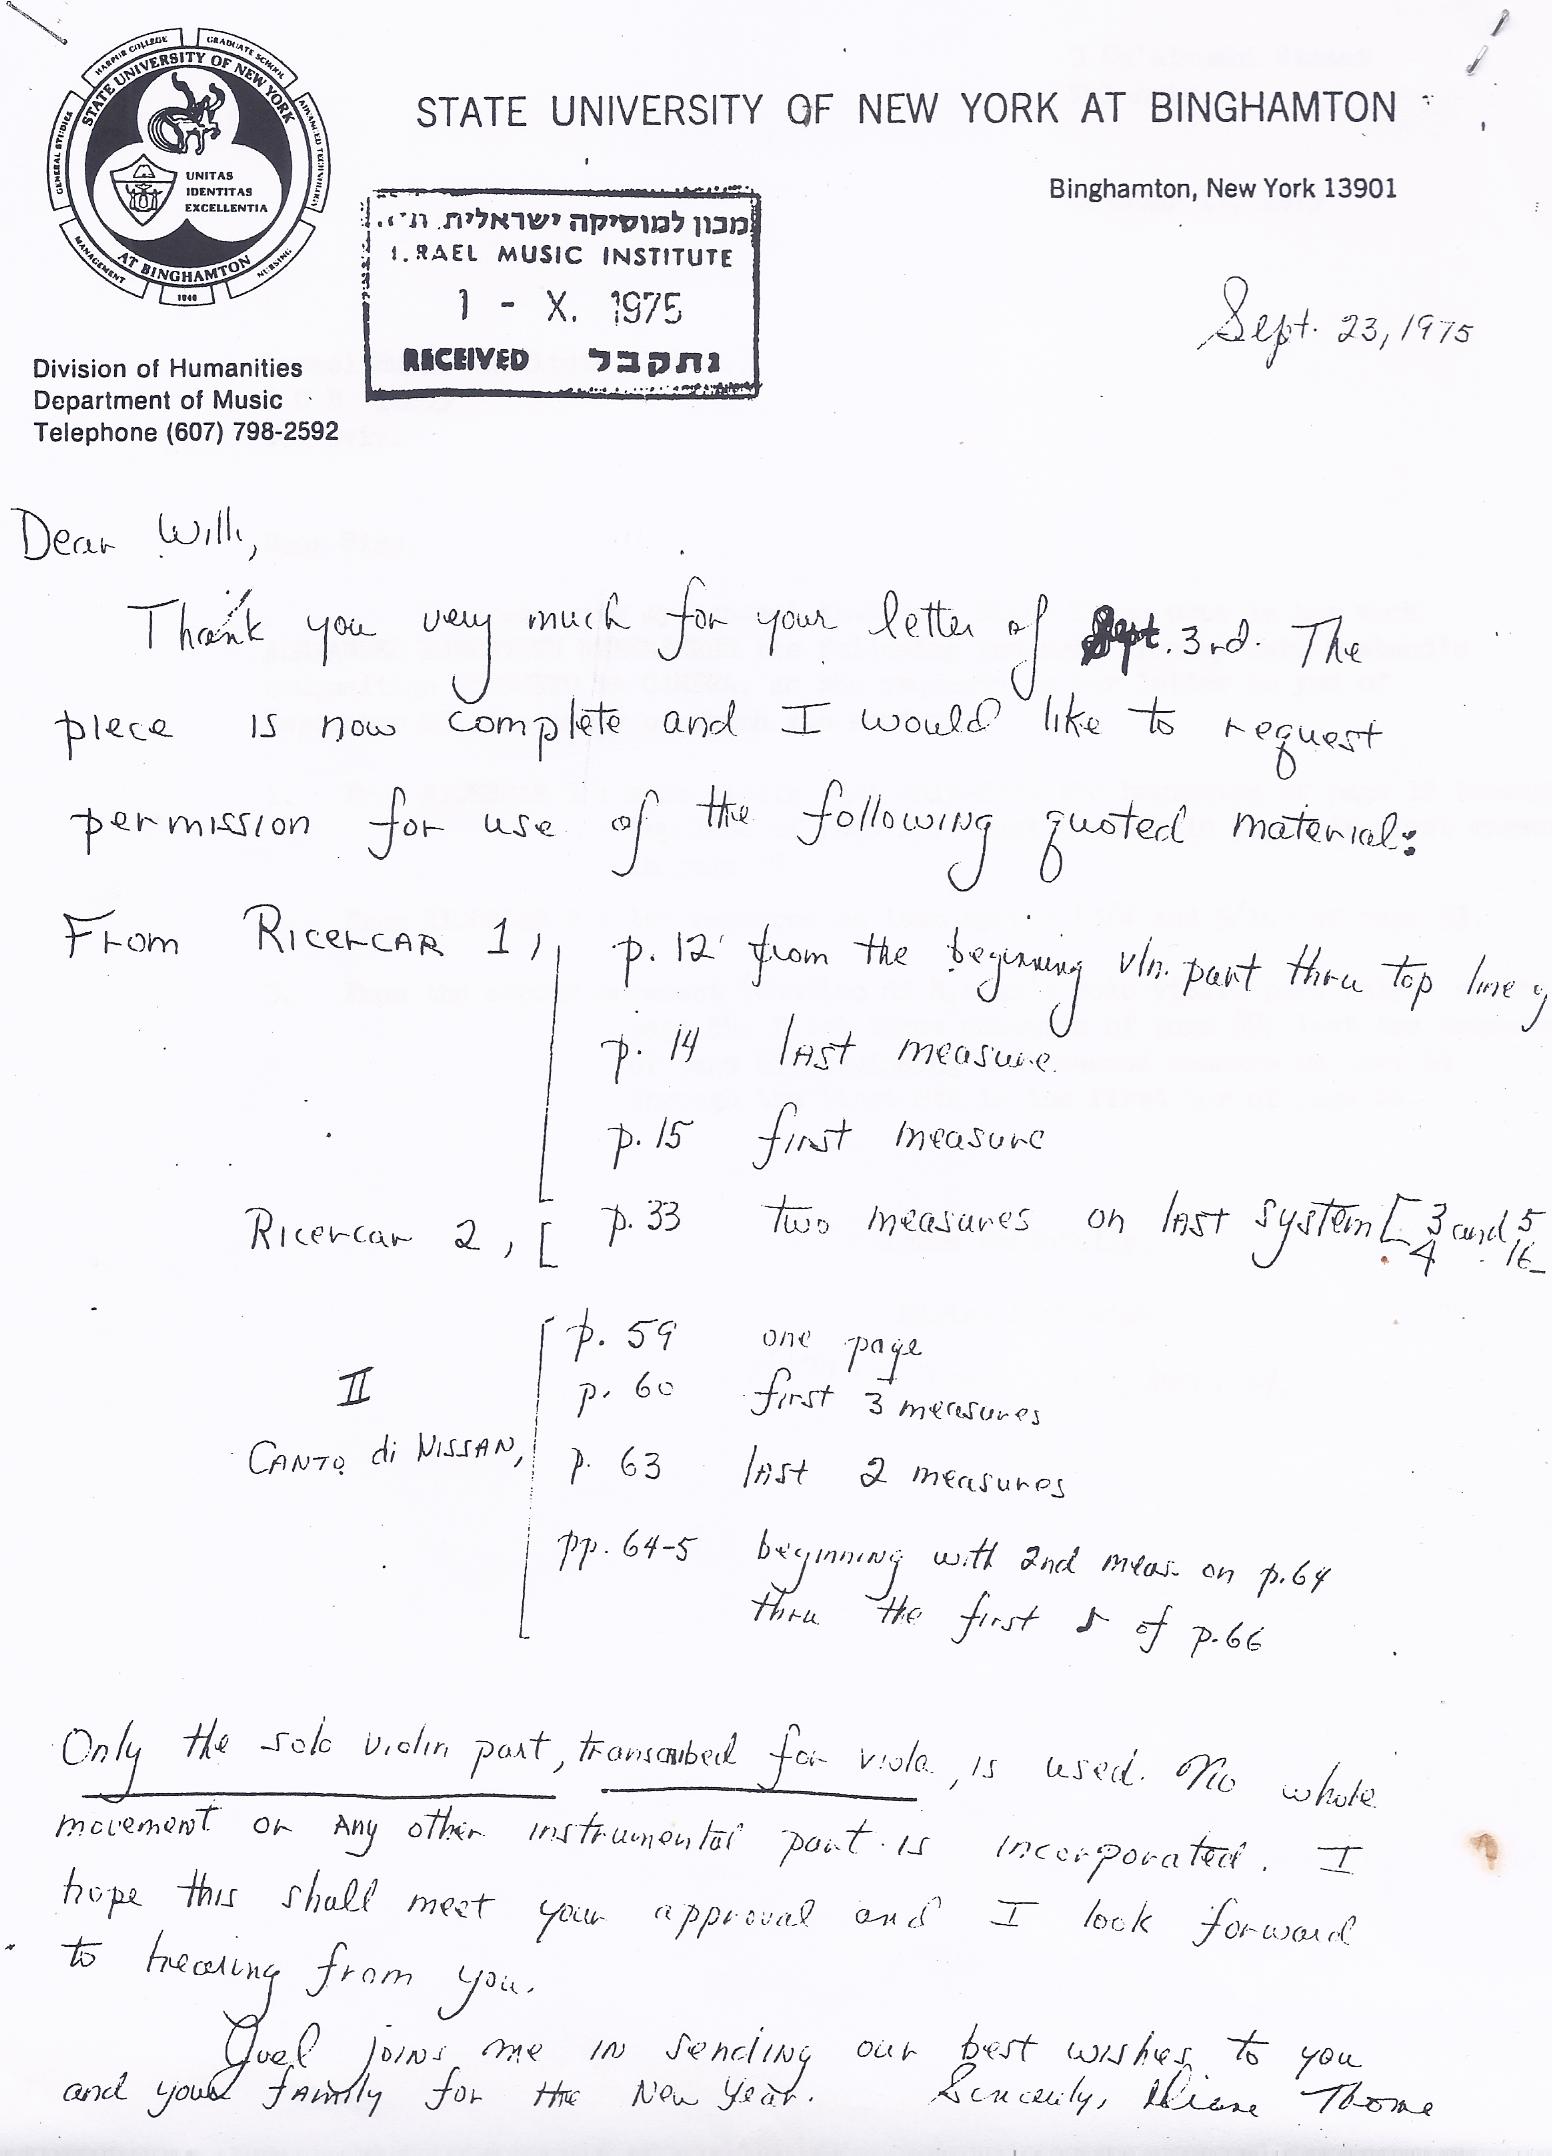 HARPUR COLLEGE
GRADUATE SCHOOL
GENERAL STUDIES
ADVANCED TECHNOLOGY
MANAGEMENT
NURSING
1946
STATE UNIVERSITY OF NEW YORK
AT BINGHAMTON
UNITAS
IDENTITAS
EXCELLENTIA
STATE UNIVERSITY OF NEW YORK AT BINGHAMTON
Binghamton, New York 13901
מכון למוסיקה ישראלית
I.RAEL MUSIC INSTITUTE
1 - X. 1975
RECEIVED נתקבל
Sept. 23, 1975
Division of Humanities
Department of Music
Telephone (607) 798-2592
Dear Willi,
Thank you very much for your letter of Sept. 3rd. The
piece is now complete and I would like to request
permission for use of the following quoted material:
From RICERCAR 1, p. 12 from the beginning vln. part thru top line
p. 14 last measure
p. 15 first measure
Ricercar 2, [ p. 33 two measures on last system [3/4 and 5/16
II
CANTO di NISSAN,
p. 59 one page
p. 60 first 3 measures
p. 63 last 2 measures
pp. 64-5 beginning with 2nd meas. on p.64
thru the first ♪ of p.66
Only the solo violin part, transcribed for viola, is used. No whole
movement or any other instrumental part is incorporated. I
hope this shall meet your approval and I look forward
to hearing from you.
joins me in sending our best wishes to you
and your family for the New Year. Sincerely, Diane Thome